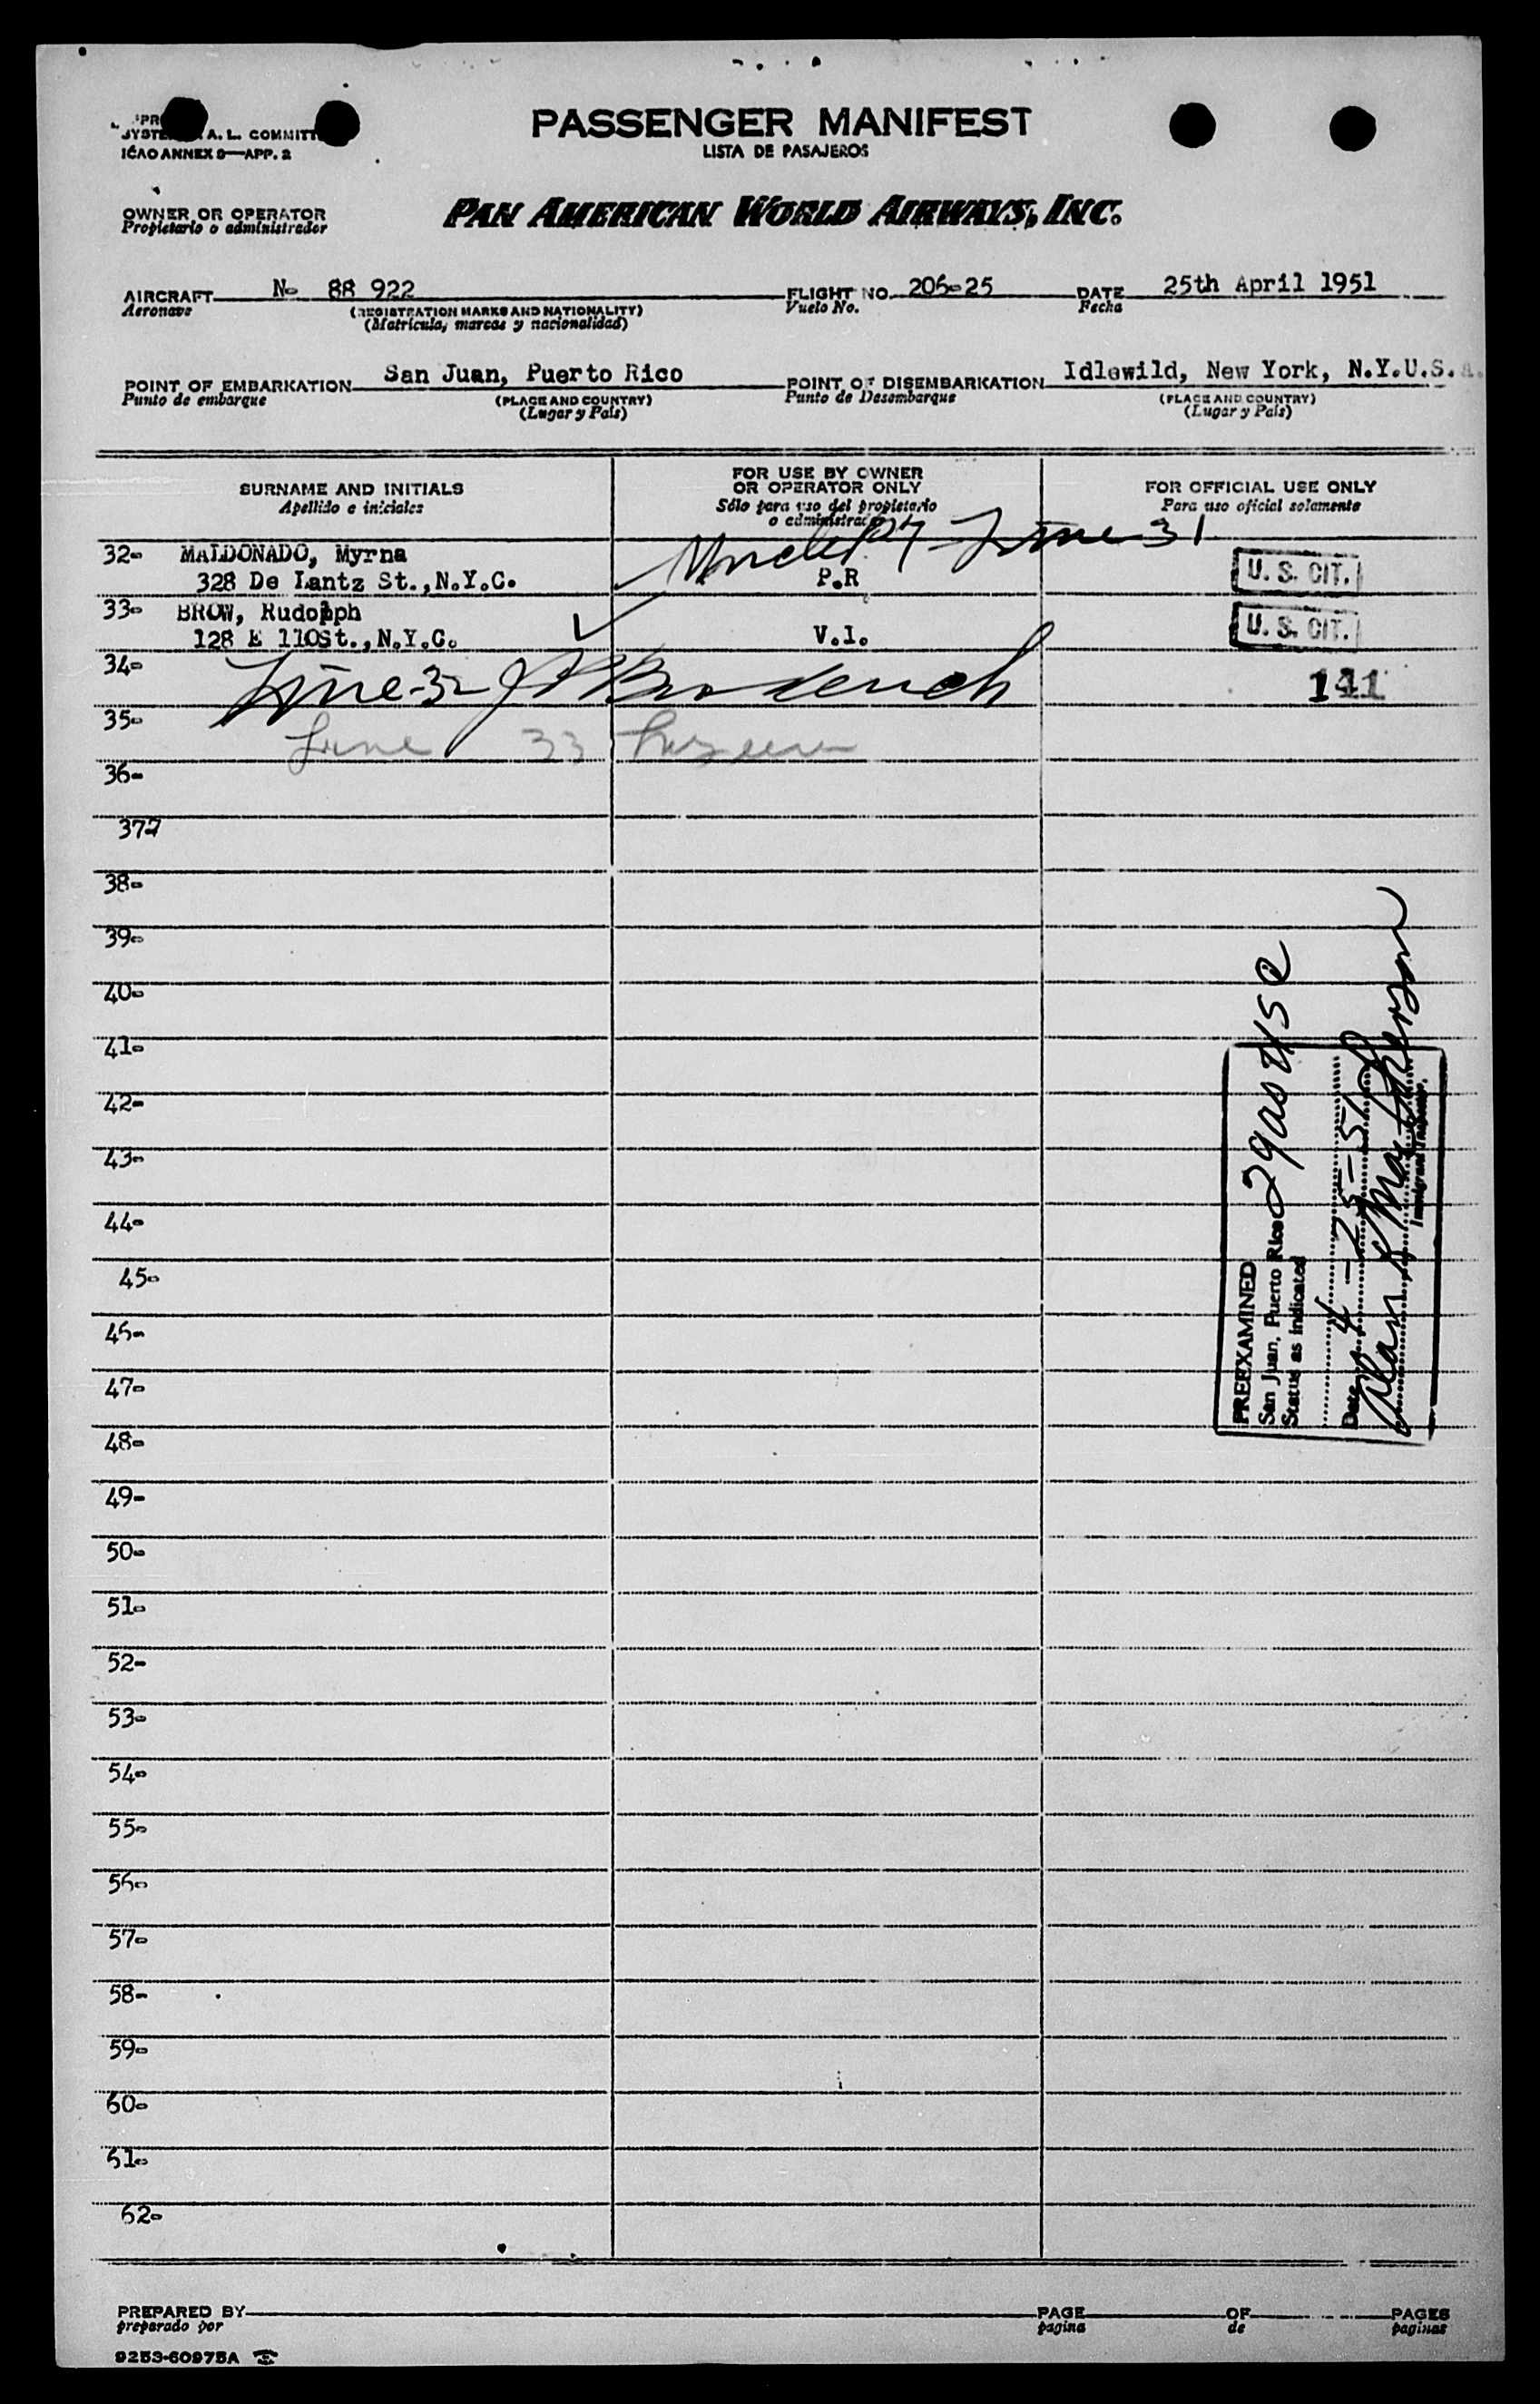 A. L. COMMITT
ICAO ANNEX 9—APP. 2
PASSENGER MANIFEST
LISTA DE PASAJEROS
OWNER OR OPERATOR
Propietario o administrador
PAN AMERICAN WORLD AIRWAYS, INC.
AIRCRAFT N- 88 922 FLIGHT NO. 206-25 DATE 25th April 1951
Aeronave (REGISTRATION MARKS AND NATIONALITY) Vuelo No. Fecha
(Matricula, marcas y nacionalidad)
POINT OF EMBARKATION San Juan, Puerto Rico POINT OF DISEMBARKATION Idlewild, New York, N.Y.U.S.A.
Punto de embarque (PLACE AND COUNTRY) Punto de Desembarque (PLACE AND COUNTRY)
(Lugar y País) (Lugar y País)
SURNAME AND INITIALS FOR USE BY OWNER OR OPERATOR ONLY FOR OFFICIAL USE ONLY
Apellido e iniciales Sólo para uso del propietario o administrador Para uso oficial solamente
Line 31
32- MALDONADO, Myrna
328 De Lantz St.,N.Y.C. P.R U. S. CIT.
33- BROW, Rudolph
128 E 110St.,N.Y.C. V.I. U. S. CIT.
34- Line-32 141
35- Line 33
36-
37-
38-
39-
40-
41-
42-
43-
44-
45-
46-
47-
48-
49-
50-
51-
52-
53-
54-
55-
56-
57-
58-
59-
60-
61-
62-
PREEXAMINED
San Juan, Puerto Rico 29 as USC
Status as indicated
Date 4-25-51
Immigrant Inspector.
PREPARED BY PAGE OF PAGES
preparado por pagina de paginas
9253-60975A